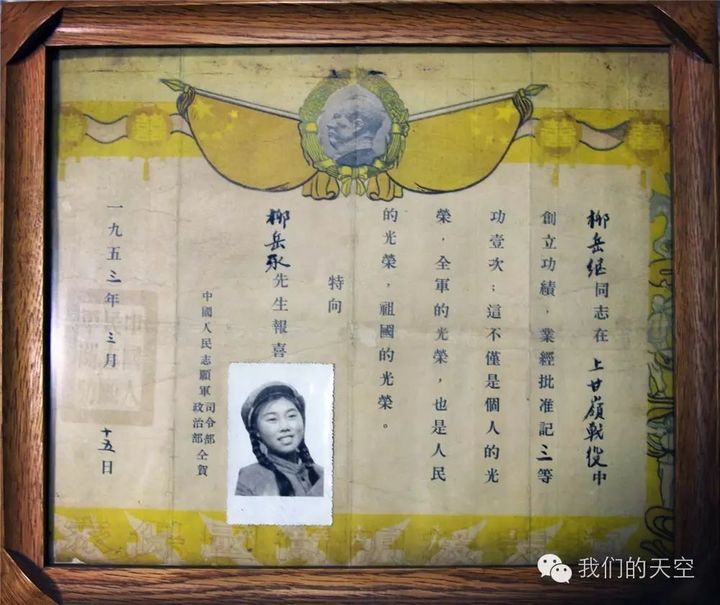 柳岳继同志在上甘嶺戰役中
創立功績，業經批准記三等
功壹次；這不僅是個人的光
榮，全軍的光榮，也是人民
的光榮，祖國的光榮。
特向
柳岳承先生報喜
中國人民志願軍司令部政治部仝賀
一九五三年三月十五日
我们的天空